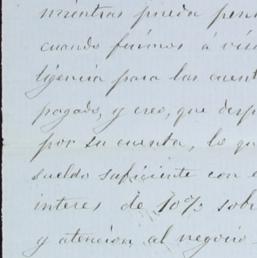 mientras pueda pen
cuando fuimos á vis
ligencia para las cuent
pagado, y creo, que desp
por su cuenta, lo qu
sueldo suficiente con e
interes de 10% sobr
y atencion al negocio